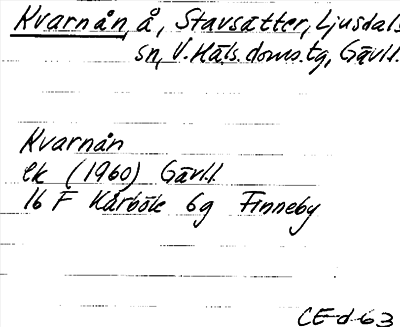 Kvarnån, å, Stavsätter, Ljusdals
sn, V. Häls. doms. tg, Gävl.l.
Kvarnån
ek (1960) Gävl.l
16 F Kårböle 6g Finneby
CE d 63